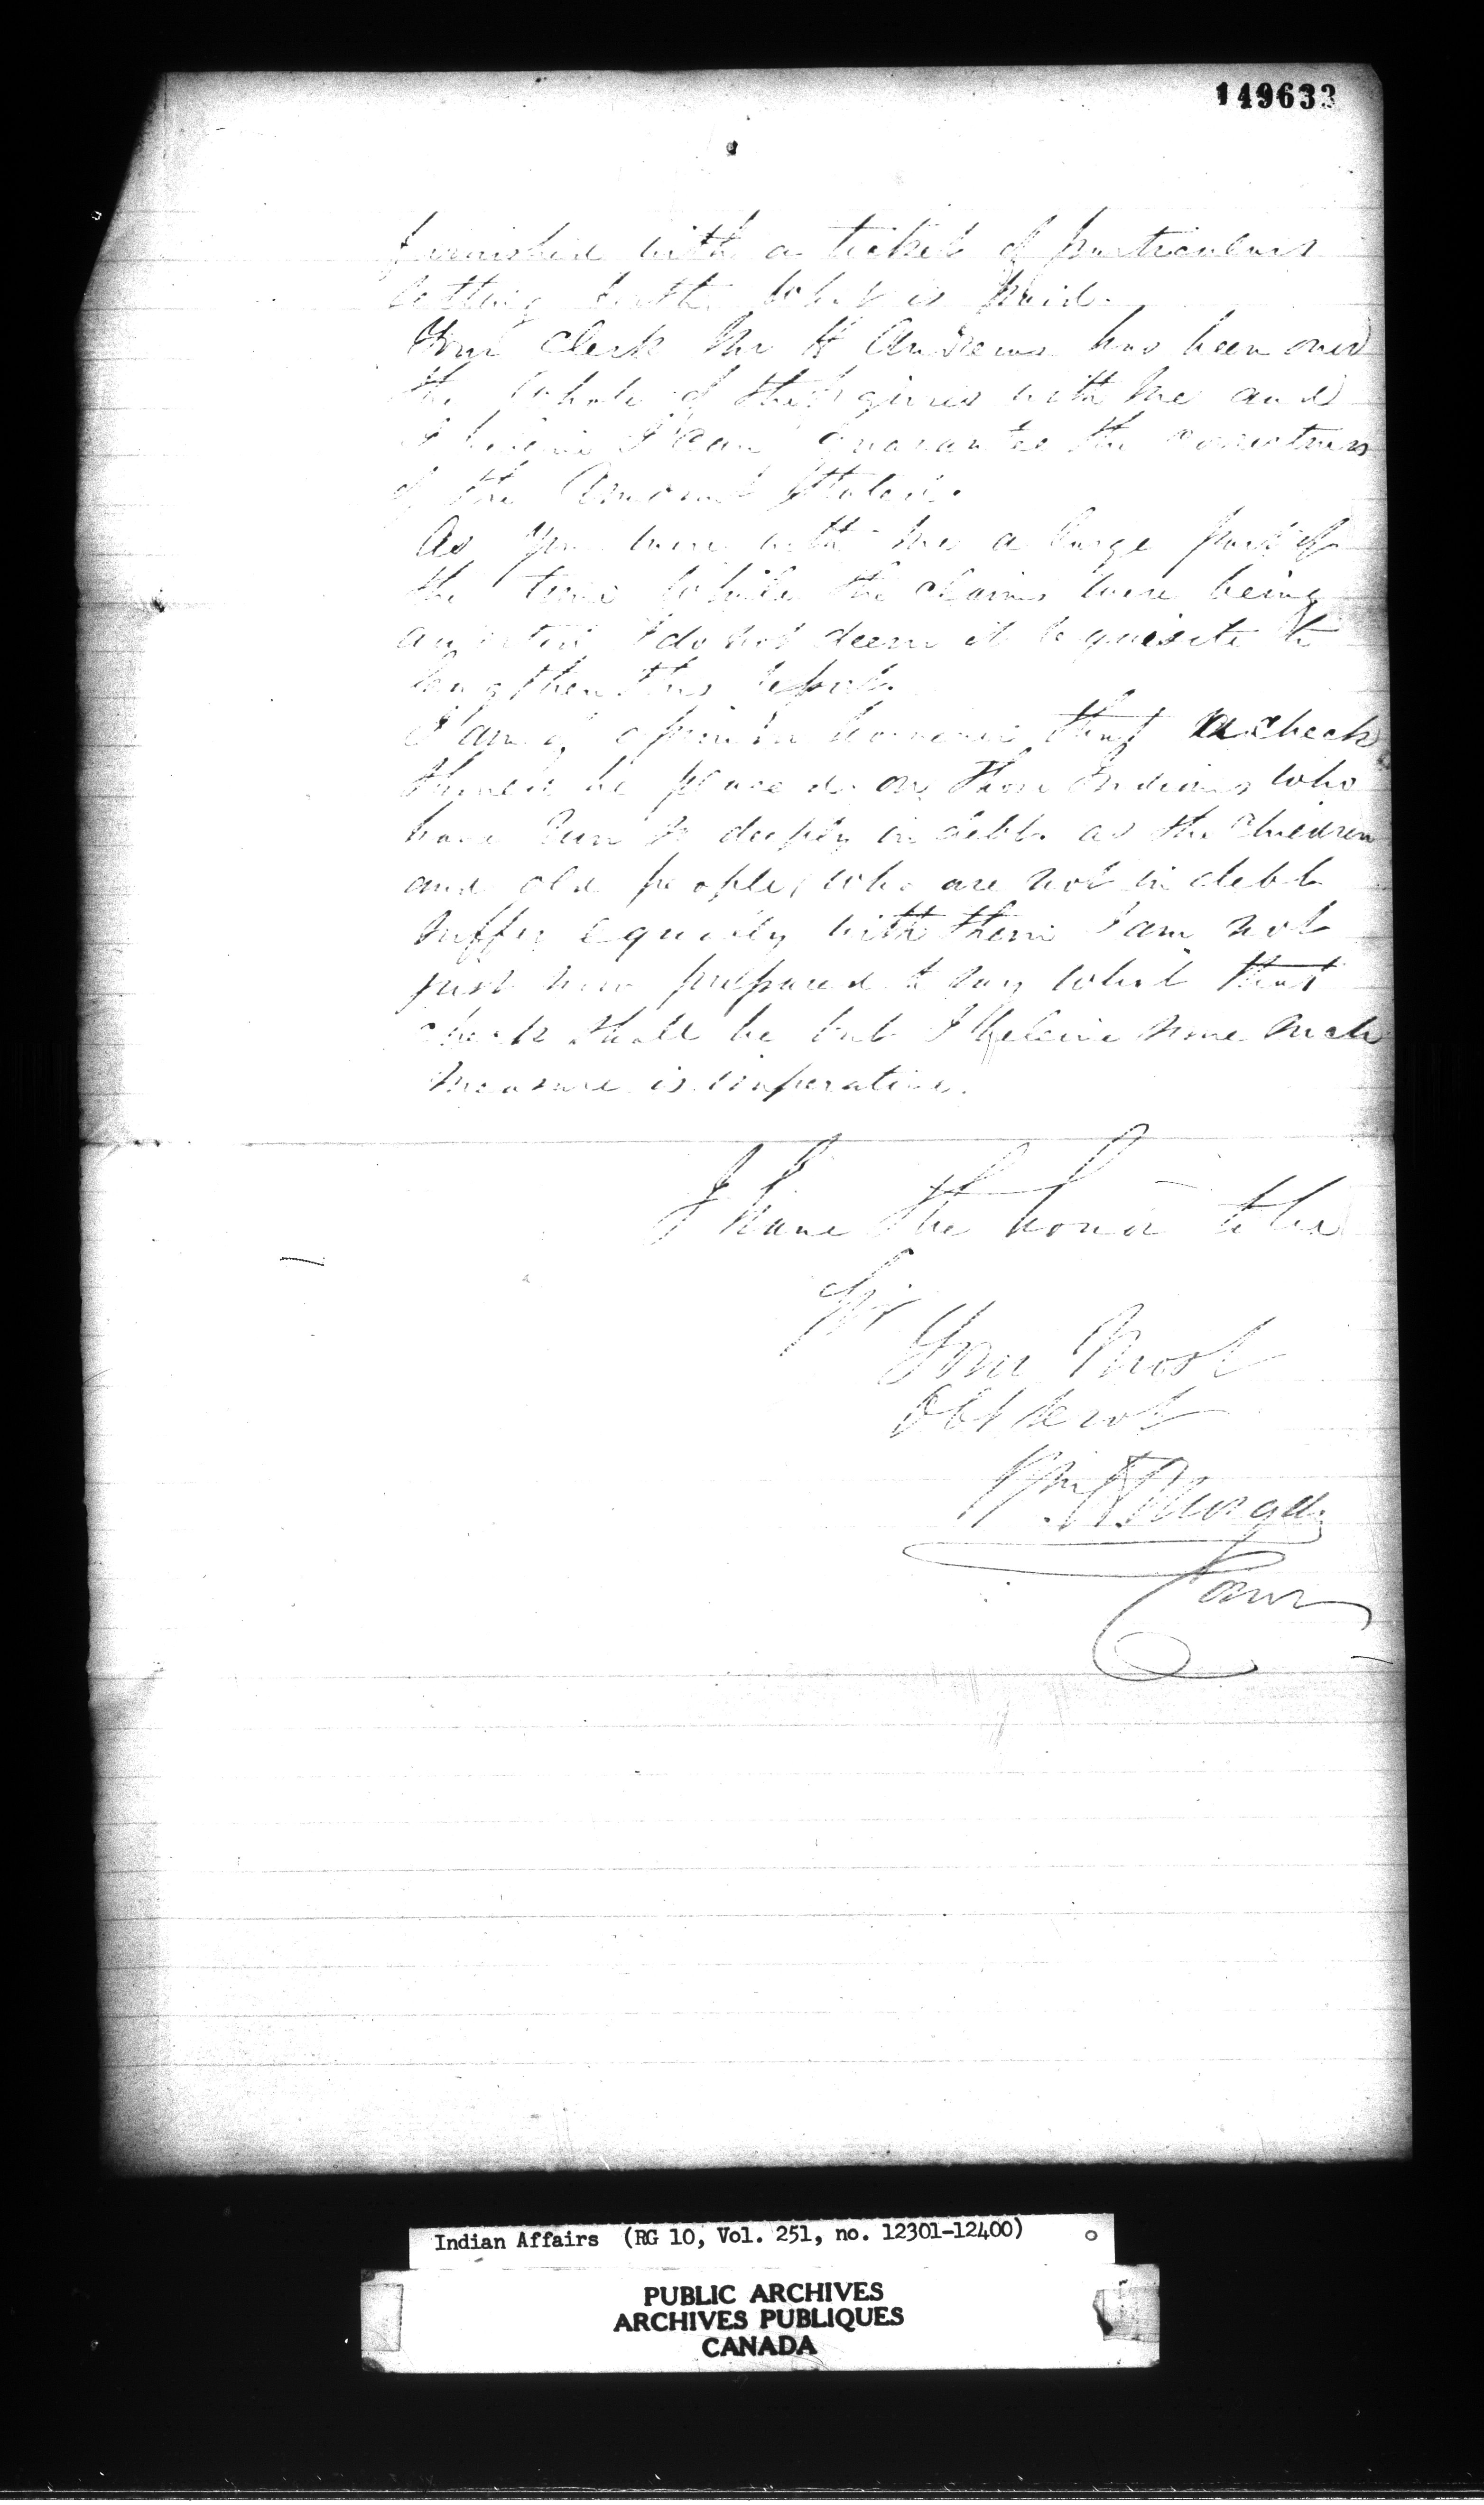 149633
furnished with a ticket of particulars
setting forth what is paid.
Your Clerk Mr H Andrews has been over
the whole of the figures with me and
I believe I can guarantee the correctness
of the Amount Stated.
As you were with me a large part of
the time while the claims were being
I do not deem it requisite to
lengthen this report.
I am of opinion however that a check
should be placed on those Indians who
have run so deeply in debt as the Children
and old people, who are not in debt
suffer equally with them I am not
just now prepared to say what that
check shall be but I believe some such
measure is imperative.
I have the honor to be
Sir
Your Most
Obt Servt
Wm
Comr
Indian Affairs (RG 10, Vol. 251, no. 12301-12400)
PUBLIC ARCHIVES
ARCHIVES PUBLIQUES
CANADA